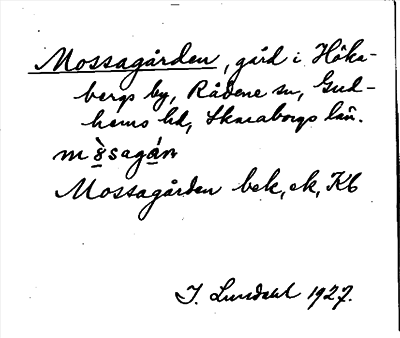 Mossagården, gård i Höka-
bergs by, Rådene sn, Gud-
hems hd, Skaraborgs län.
Mossagården bek, ek, Kb
I. Lundahl 1927.